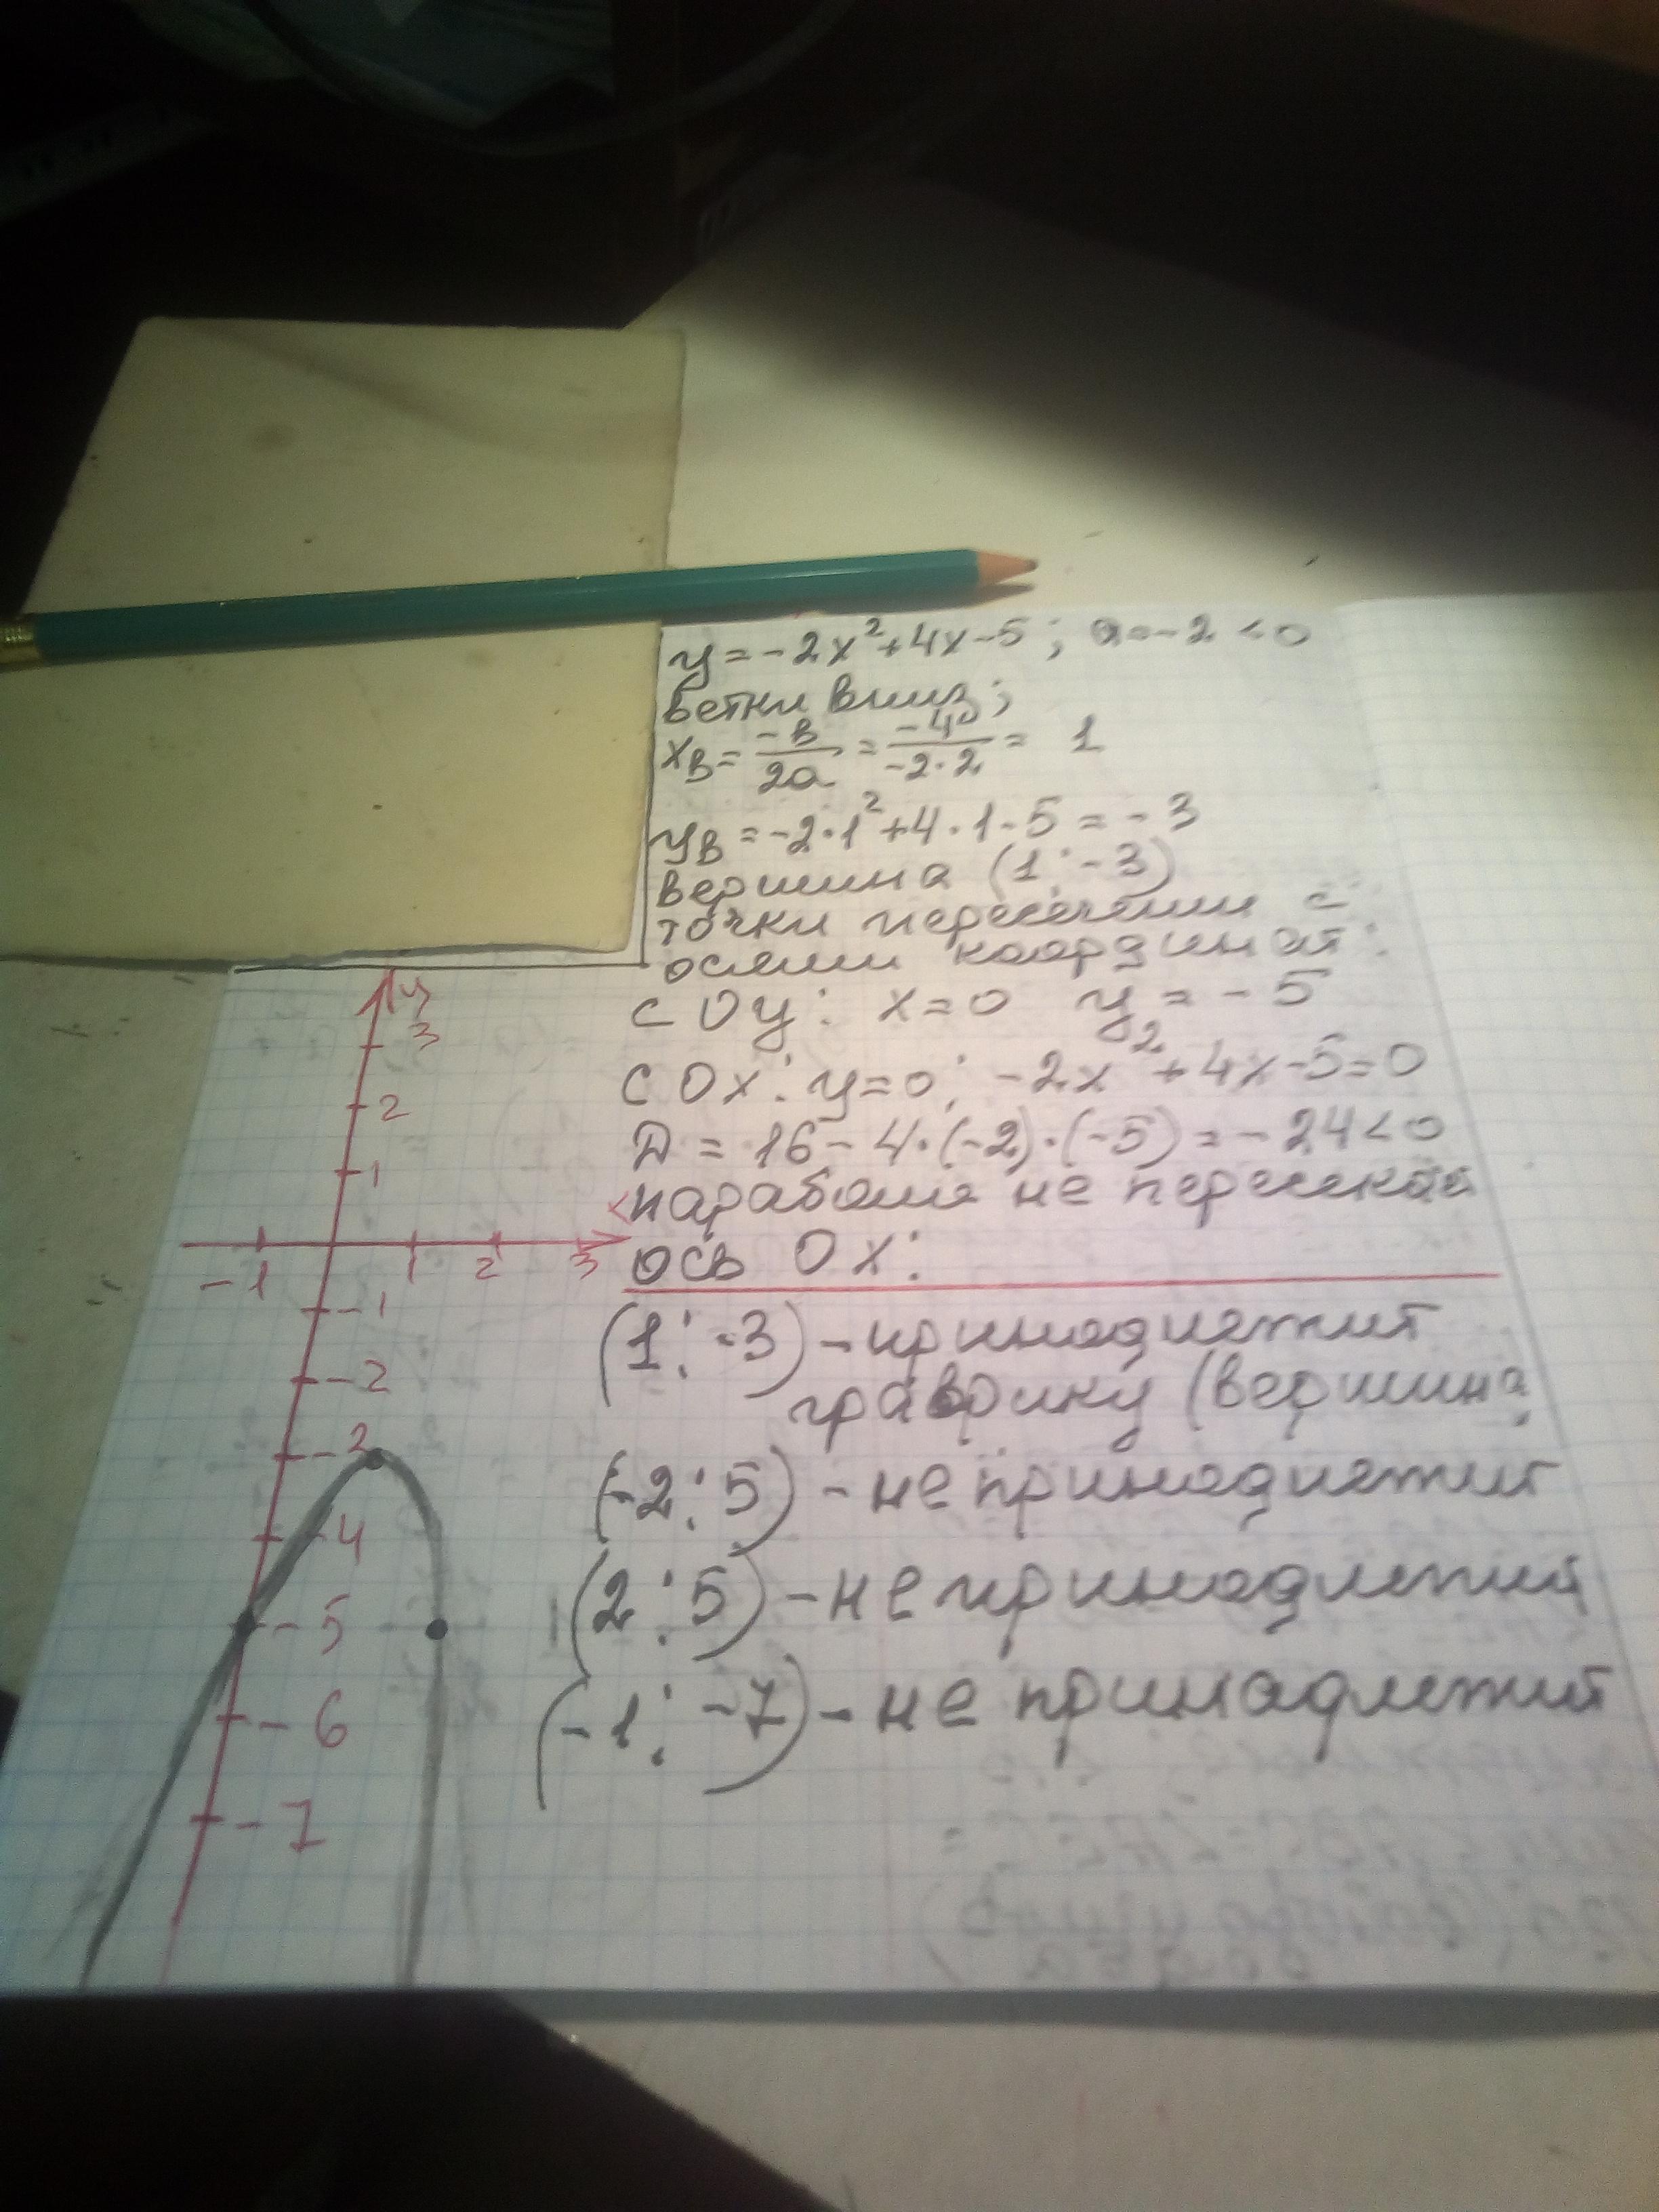 y = -2x² + 4x - 5 ; a = -2 < 0
ветки вниз ;
x_B = -в/2a = -4/-2·2 = 1
y_B = -2·1² + 4·1 - 5 = -3
вершина (1; -3)
точки пересечения с
осями координат:
с Оу: x = 0 y = -5
с Ох: y = 0; -2x² + 4x - 5 = 0
Д = 16 - 4·(-2)·(-5) = -24 < 0
парабола не пересекает
ось Ох:
(1; -3) - принадлежит
графику (вершина
(-2; 5) - не принадлежит
(2; 5) - не принадлежит
(-1; -7) - не принадлежит
y
3
2
1
-1 1 2 3 x
-1
-2
-3
-4
-5
-6
-7